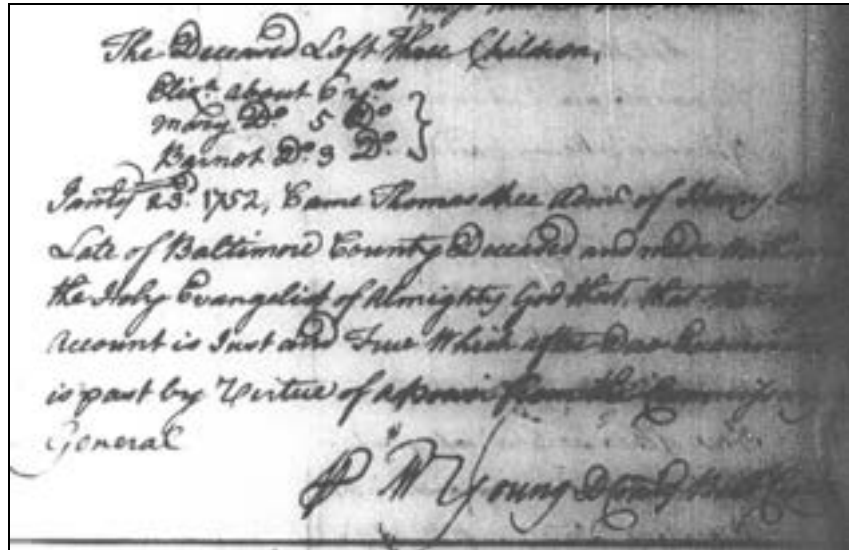 The Deceased Left three Children,
Eliz.a about 6 y.rs
Mary D.o 5 D.o
Barnet D.o 3 D.o
23. 1752, Came Thomas Adm.r of Henry
Late of Baltimore County Deceased and made Oath on
the Holy Evangelist of Almighty God that, that the
Account is Just and True Which after Due
is past by Virtue of a Power from the Commissary
General
W Young D County Balt